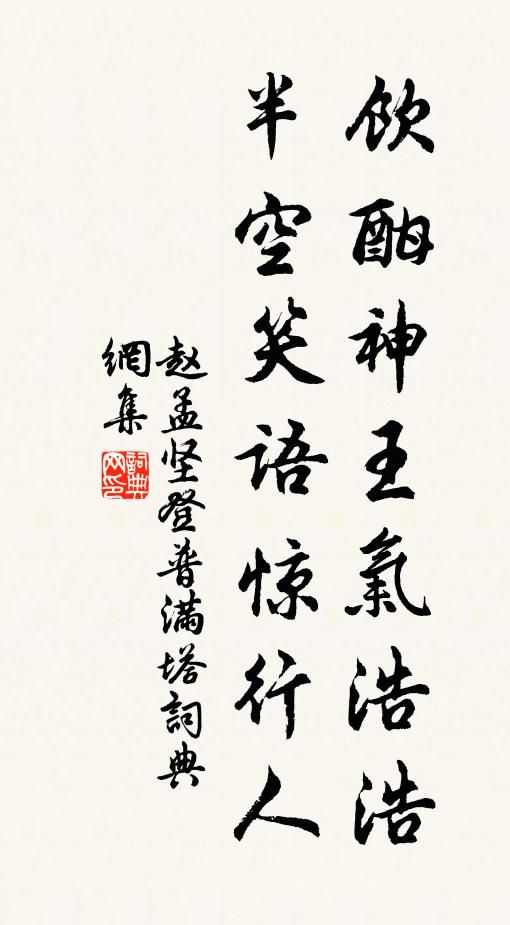 飲酣神王氣浩浩
半空笑語惊行人
赵孟坚登普满塔詞典
網集
詞典
网印